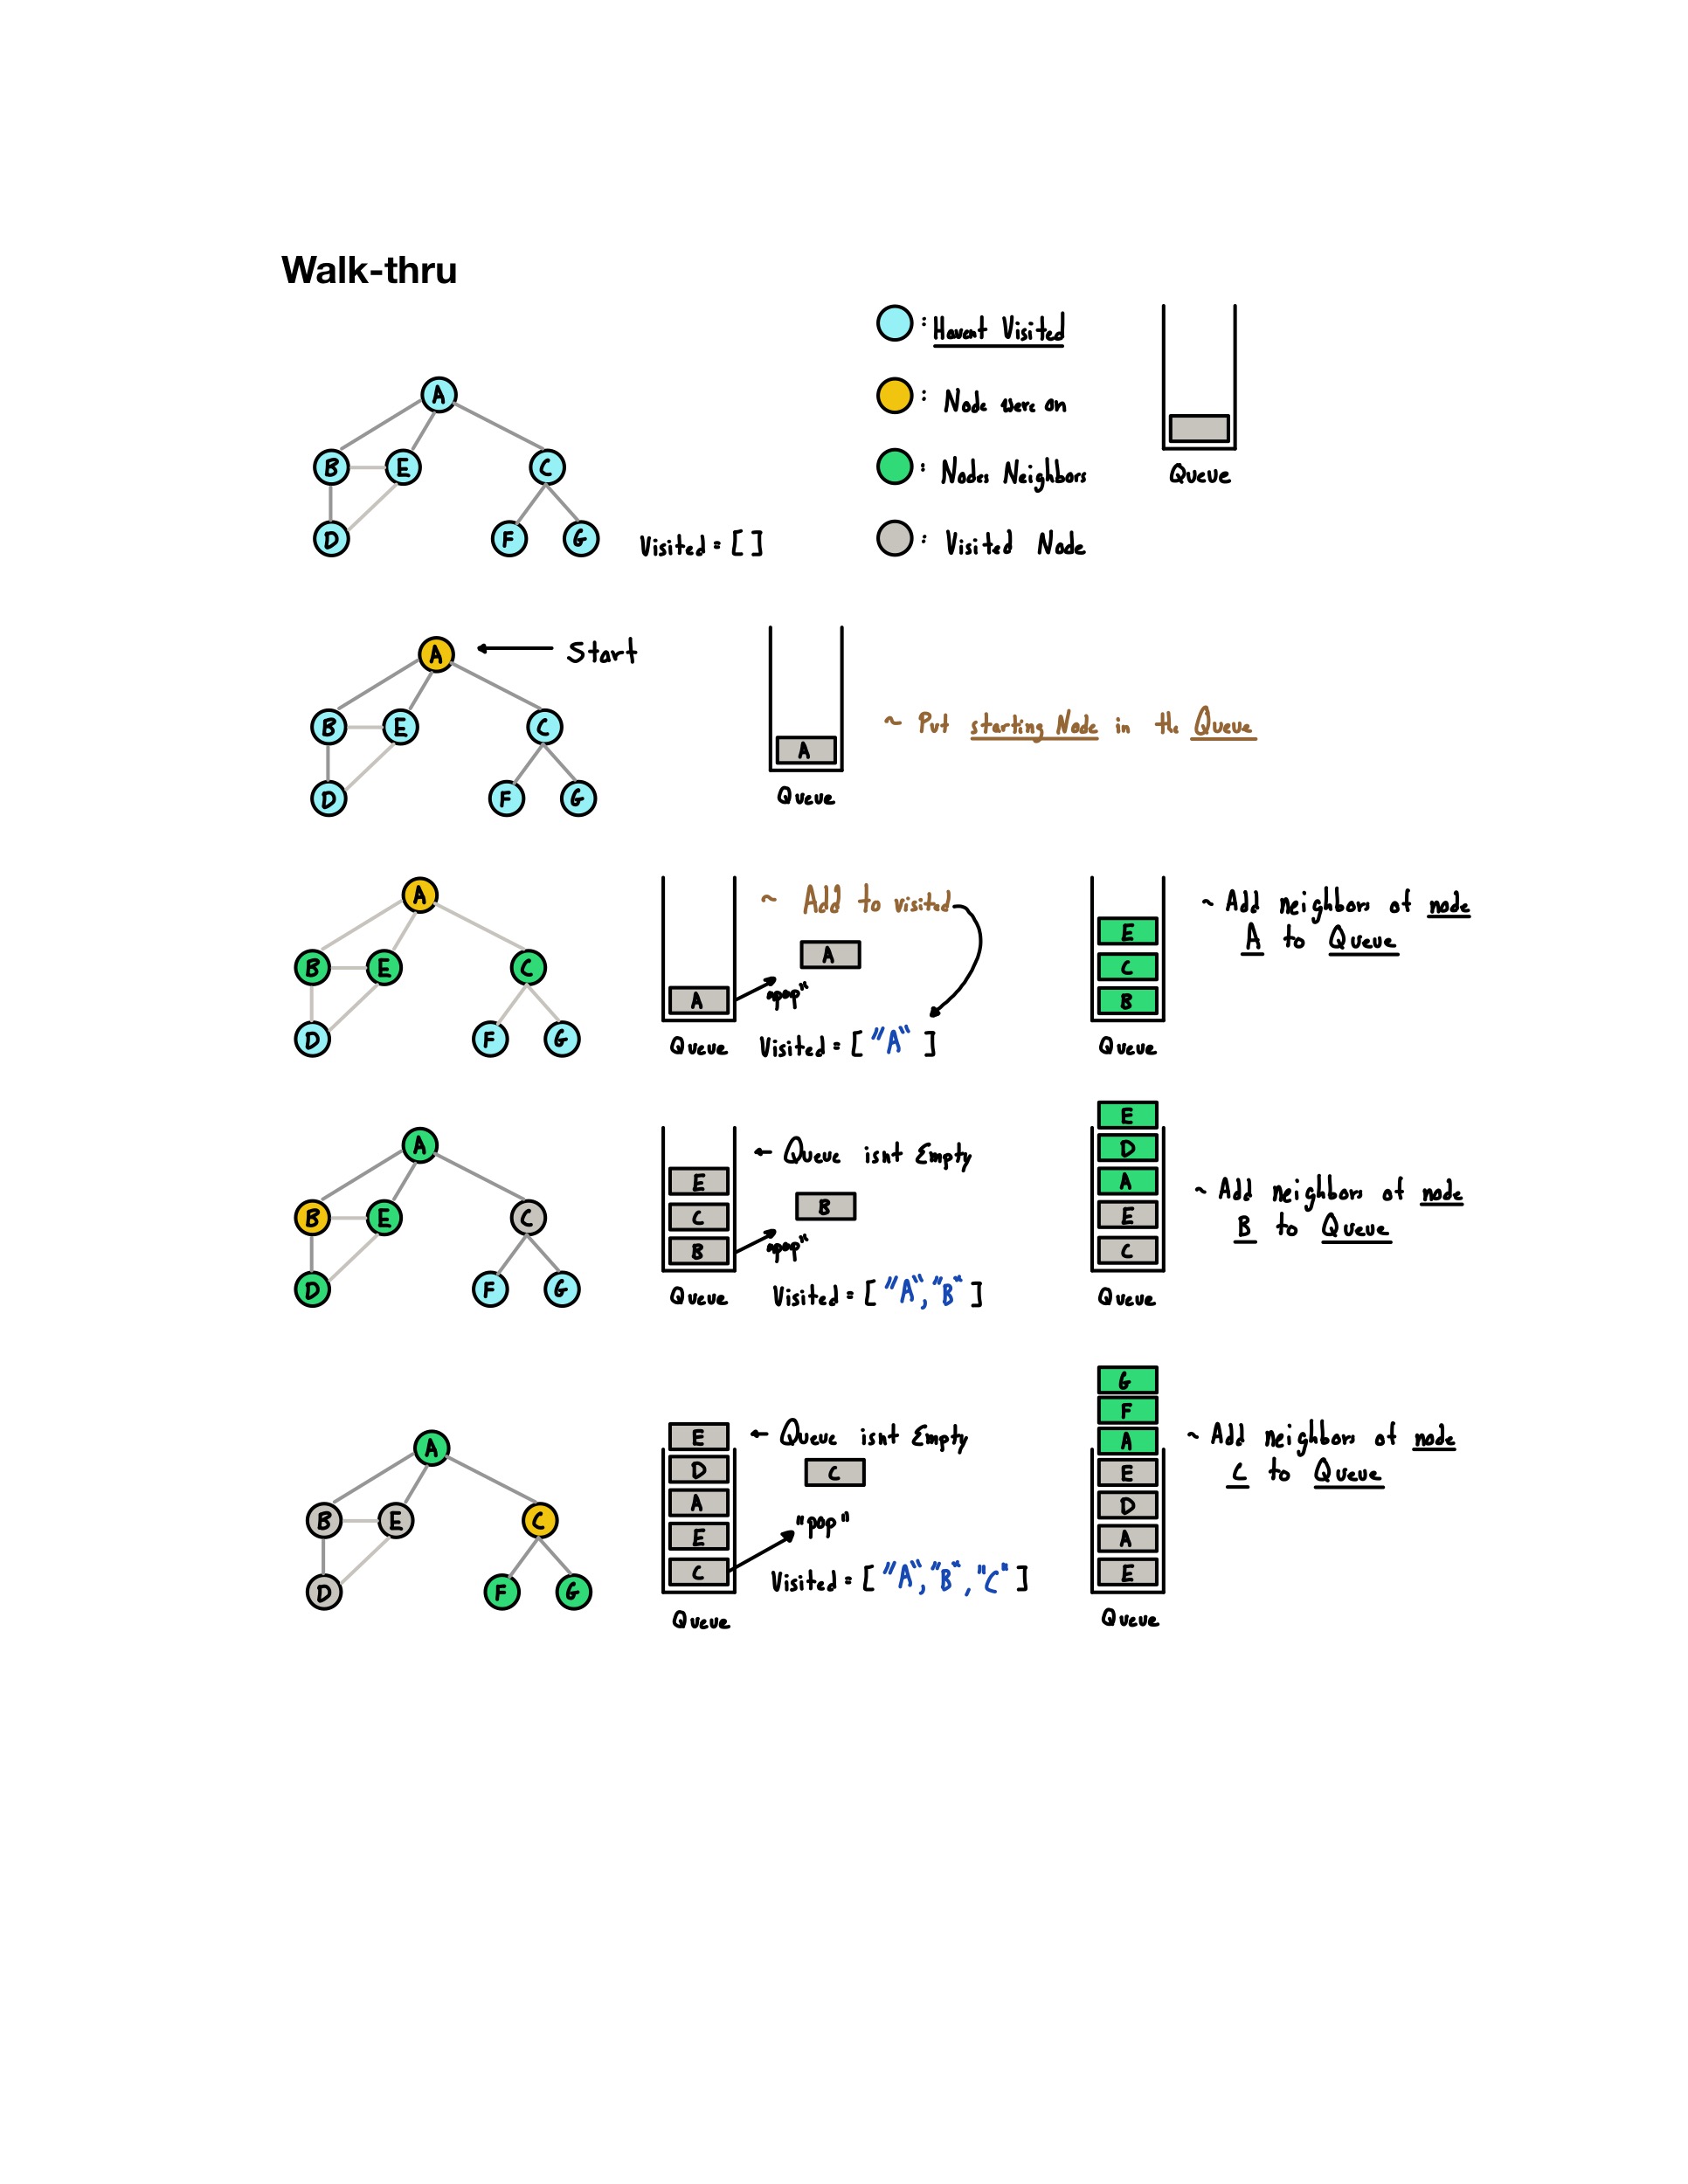 Walk-thru
: Havent Visited
: Node were on
: Nodes Neighbors
: Visited Node
Queue
A
B E C
D F G
Visited = [ ]
A
Start
B E C
D F G
A
Queue
~ Put starting Node in the Queue
A
B E C
D F G
A
Queue
~ Add to visited
A
"pop"
Visited = [ "A" ]
E
C
B
Queue
~ Add neighbors of node
A to Queue
A
B E C
D F G
E
C
B
Queue
← Queue isnt Empty
B
"pop"
Visited = [ "A", "B" ]
E
D
A
E
C
Queue
~ Add neighbors of node
B to Queue
A
B E C
D F G
E
D
A
E
C
Queue
← Queue isnt Empty
C
"pop"
Visited = [ "A", "B", "C" ]
G
F
A
E
D
A
E
Queue
~ Add neighbors of node
C to Queue